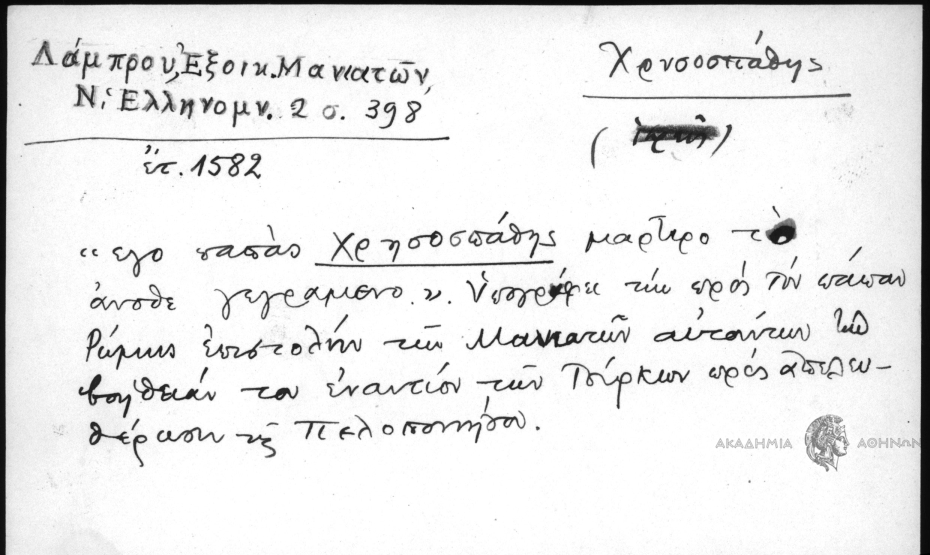 Λάμπρου, Ἐξοικ. Μανιατῶν,
Ν. Ἑλληνομν. 2 σ. 398
ἔτ. 1582
Χρυσοσπάθης
"εγο παπὰς Χρησοσπάθης μαρτιρο τὸ
άνοθε γεγραμενο". Ὑπογράφει τὴν πρὸς τὸν πάπαν
Ρώμης ἐπιστολὴν τῶν Μανιατῶν αἰτούντων τὴν
βοήθειάν του ἐναντίον τῶν Τούρκων πρὸς απελευ-
θέρωσιν τῆς Πελοποννήσου.
ΑΚΑΔΗΜΙΑ ΑΘΗΝΩΝ